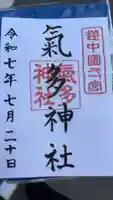 越中國一宮
氣多神社
氣多神社
令和七年七月二十日